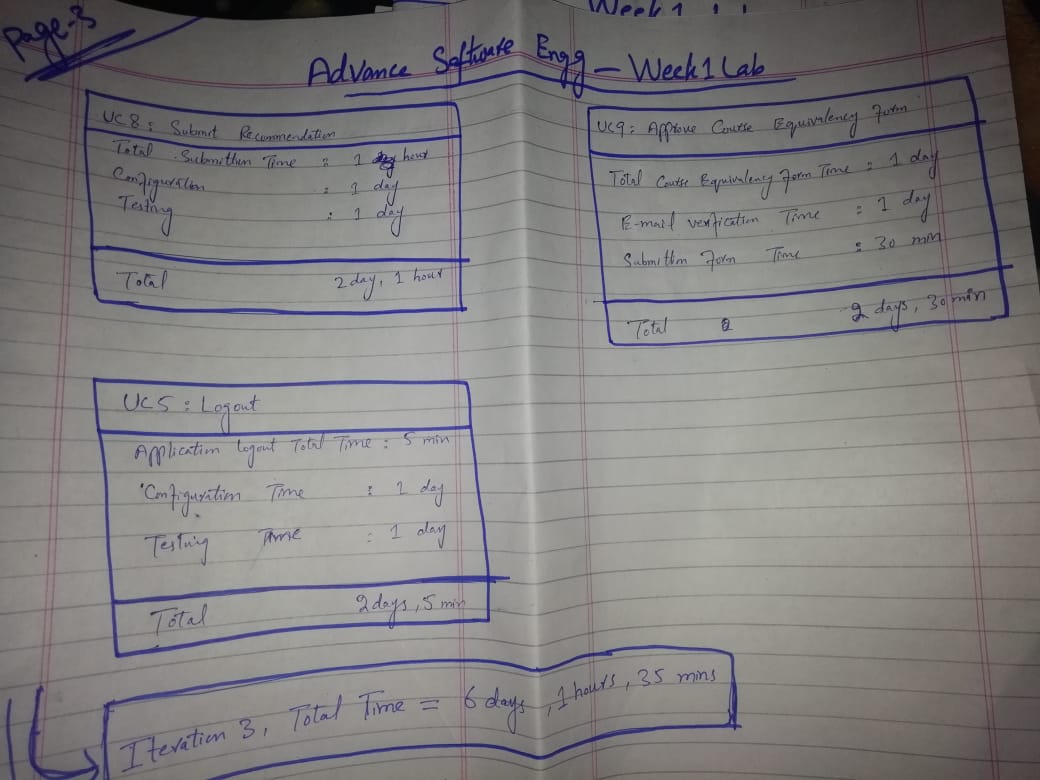 Page-3
Week 1
Advance Software Engg - Week 1 Lab
UC8: Submit Recommendation
Total Submittion Time : 1 hour
Configuration : 1 day
Testing : 1 day
Total 2 day, 1 hour
UC9: Approve Course Equivalency Form
Total Course Equivalency Form Time : 1 day
E-mail verification Time : 1 day
Submittion Form Time : 30 min
Total 2 days, 30 min
UC5 : Logout
Application logout Total Time : 5 min
Configuration Time : 1 day
Testing Time : 1 day
Total 2 days, 5 min
Iteration 3, Total Time = 6 days, 1 hours, 35 mins